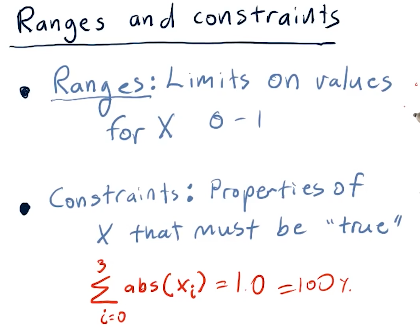 Ranges and constraints
• Ranges: Limits on values
for X 0-1
• Constraints: Properties of
X that must be "true"
3
∑ abs(xi) = 1.0 = 100%
i=0